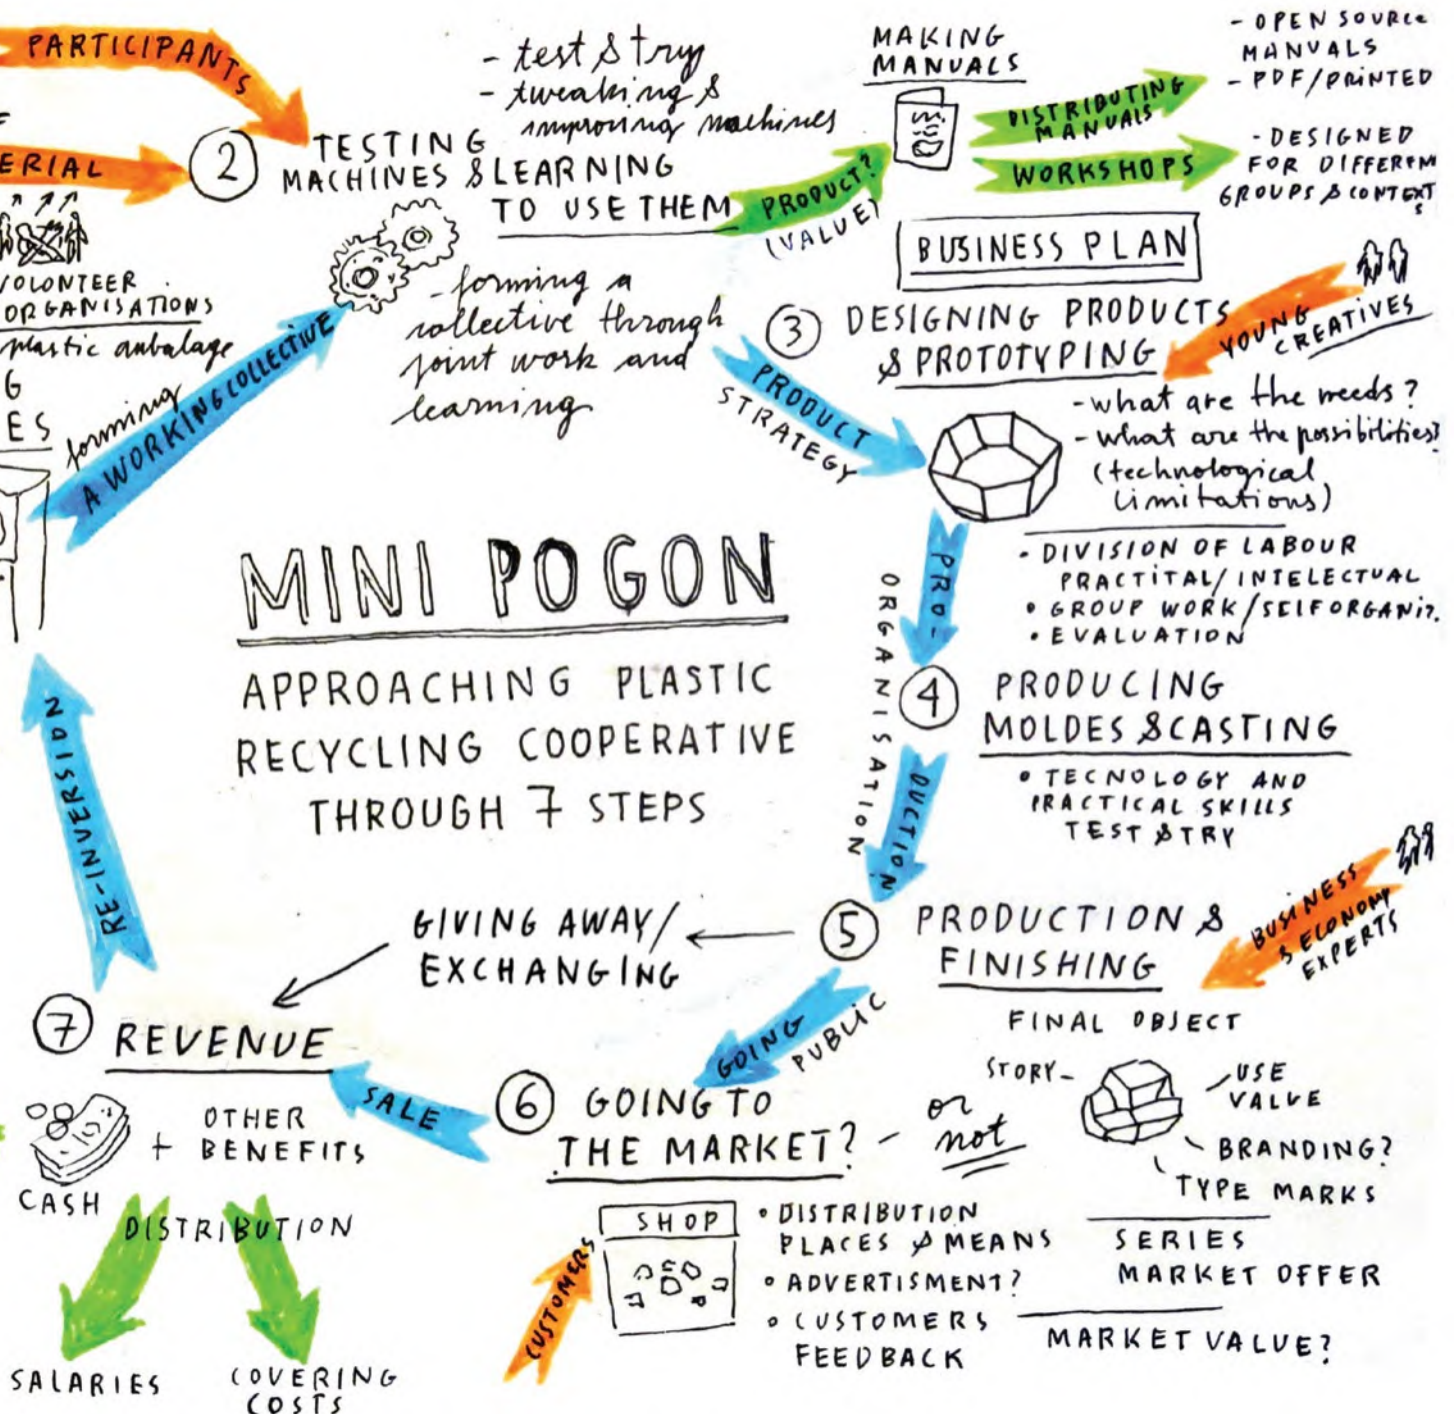 PARTICIPANTS
ERIAL
VOLONTEER
ORGANISATIONS
plastic ambalage
G
ES
forming
A WORKING COLLECTIVE
2
TESTING
MACHINES & LEARNING
TO USE THEM
- test & try
- tweaking &
improving machines
- forming a
collective through
joint work and
learning
PRODUCT?
(VALUE)
MAKING
MANUALS
DISTRIBUTING
MANUALS
WORKSHOPS
- OPEN SOURCE
MANUALS
- PDF/PRINTED
- DESIGNED
FOR DIFFERENT
GROUPS & CONTEXTS
BUSINESS PLAN
3
DESIGNING PRODUCTS
& PROTOTYPING
YOUNG
CREATIVES
PRODUCT
STRATEGY
- what are the needs?
- what are the possibilities?
(technological
limitations)
• DIVISION OF LABOUR
PRACTITAL/INTELECTUAL
• GROUP WORK/SELFORGANIZ.
• EVALUATION
PRO-
DUCTION
ORGANISATION
4
PRODUCING
MOLDES & CASTING
• TECNOLOGY AND
PRACTICAL SKILLS
TEST & TRY
MINI POGON
APPROACHING PLASTIC
RECYCLING COOPERATIVE
THROUGH 7 STEPS
5
PRODUCTION &
FINISHING
BUSINESS
& ECONOMY
EXPERTS
FINAL OBJECT
STORY -
USE
VALUE
BRANDING?
TYPE MARKS
SERIES
MARKET OFFER
MARKET VALUE?
GIVING AWAY/
EXCHANGING
GOING
PUBLIC
6
GOING TO
THE MARKET? -
or
not
SHOP
CUSTOMERS
• DISTRIBUTION
PLACES & MEANS
• ADVERTISMENT?
• CUSTOMERS
FEEDBACK
SALE
7
REVENUE
CASH
+
OTHER
BENEFITS
DISTRIBUTION
SALARIES
COVERING
COSTS
RE-INVERSION